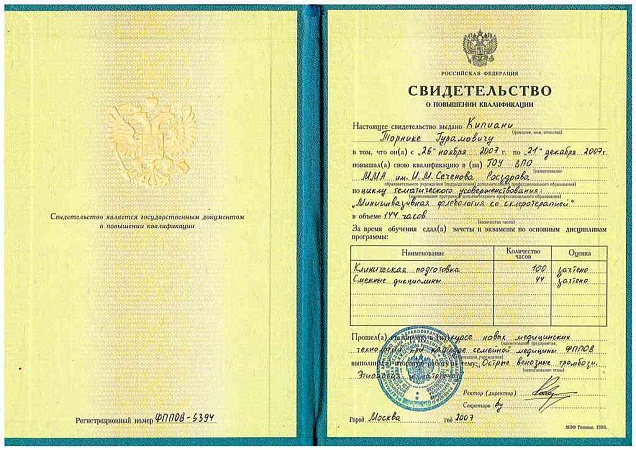 Свидетельство является государственным документом
о повышении квалификации
Регистрационный номер ФППОВ-5394
РОССИЙСКАЯ ФЕДЕРАЦИЯ
СВИДЕТЕЛЬСТВО
О ПОВЫШЕНИИ КВАЛИФИКАЦИИ
Настоящее свидетельство выдано Кипиани
Торнике Гурамовичу
(фамилия, имя, отчество)
в том, что он(а) с „26" ноября 2007 г. по „21" декабря 2007 г.
повышал(а) свою квалификацию в (на) ГОУ ВПО
(наименование
ММА им. И.М. Сеченова Росздрава
образовательного учреждения (подразделения) дополнительного профессионального образования)
по циклу тематического усовершенствования:
„Миниинвазивная флебология со склеротерапией"
в объеме 144 часов
(количество часов)
За время обучения сдал(а) зачеты и экзамены по основным дисциплинам
программы:
Наименование Количество часов Оценка
Клиническая подготовка 100 зачтено
Смежные дисциплины 44 зачтено
Прошел(а) стажировку в (на) курсе новых медицинских
технологий при кафедре семейной медицины ФППОВ
выполнил(а) итоговую работу на тему: Острые венозные тромбозы.
(наименование темы)
Этиология и патогенез
Ректор (директор)
Секретарь
Город Москва год 2007